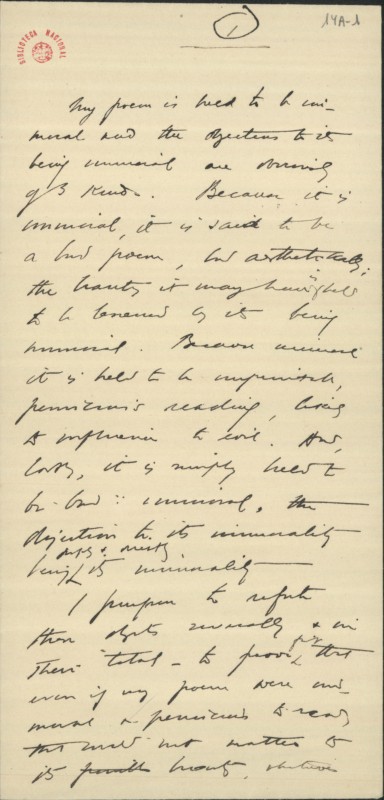 1
14A-1
BIBLIOTECA NACIONAL
My poem is held to be im-
moral and the objections to its
being immoral are obviously
of 3 kinds. Because it is
immoral, it is said to be
a bad poem, bad aesthetically;
the beauty it may have is held
to be lessened by its being
immoral. Because immoral
it is held to be
pernicious reading,
to influence to evil. And,
lastly, it is simply held to
be bad immoral, the
objection to its immorality
being simply & directly its immorality
I propose to refute
these objects severally & in
their total — to prove that
even if my poem were im-
moral & pernicious to read
that would not matter to
its beauty,